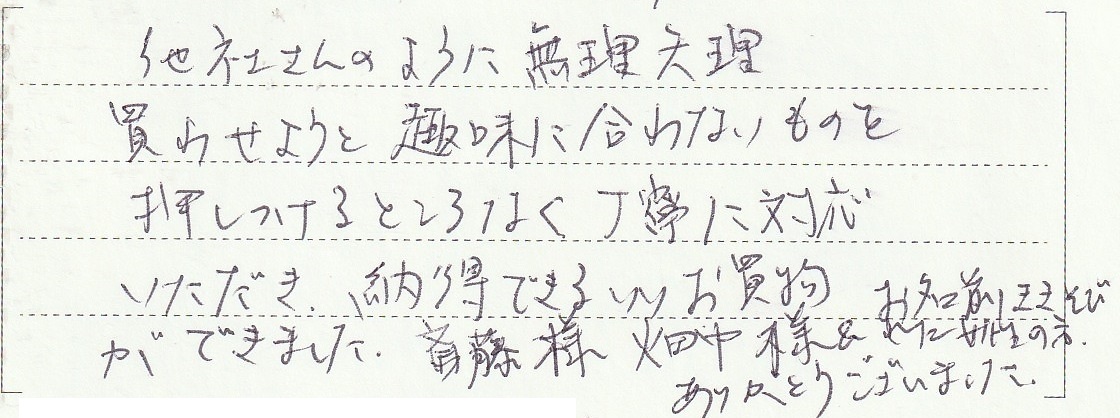 他社さんのように無理矢理
買わせようと趣味に合わないものを
押しつけるところなく丁寧に対応
いただき、納得できるいいお買物
ができました。斉藤様 畑中様& お名前ききそび
れた女性の方、
ありがとうございました。